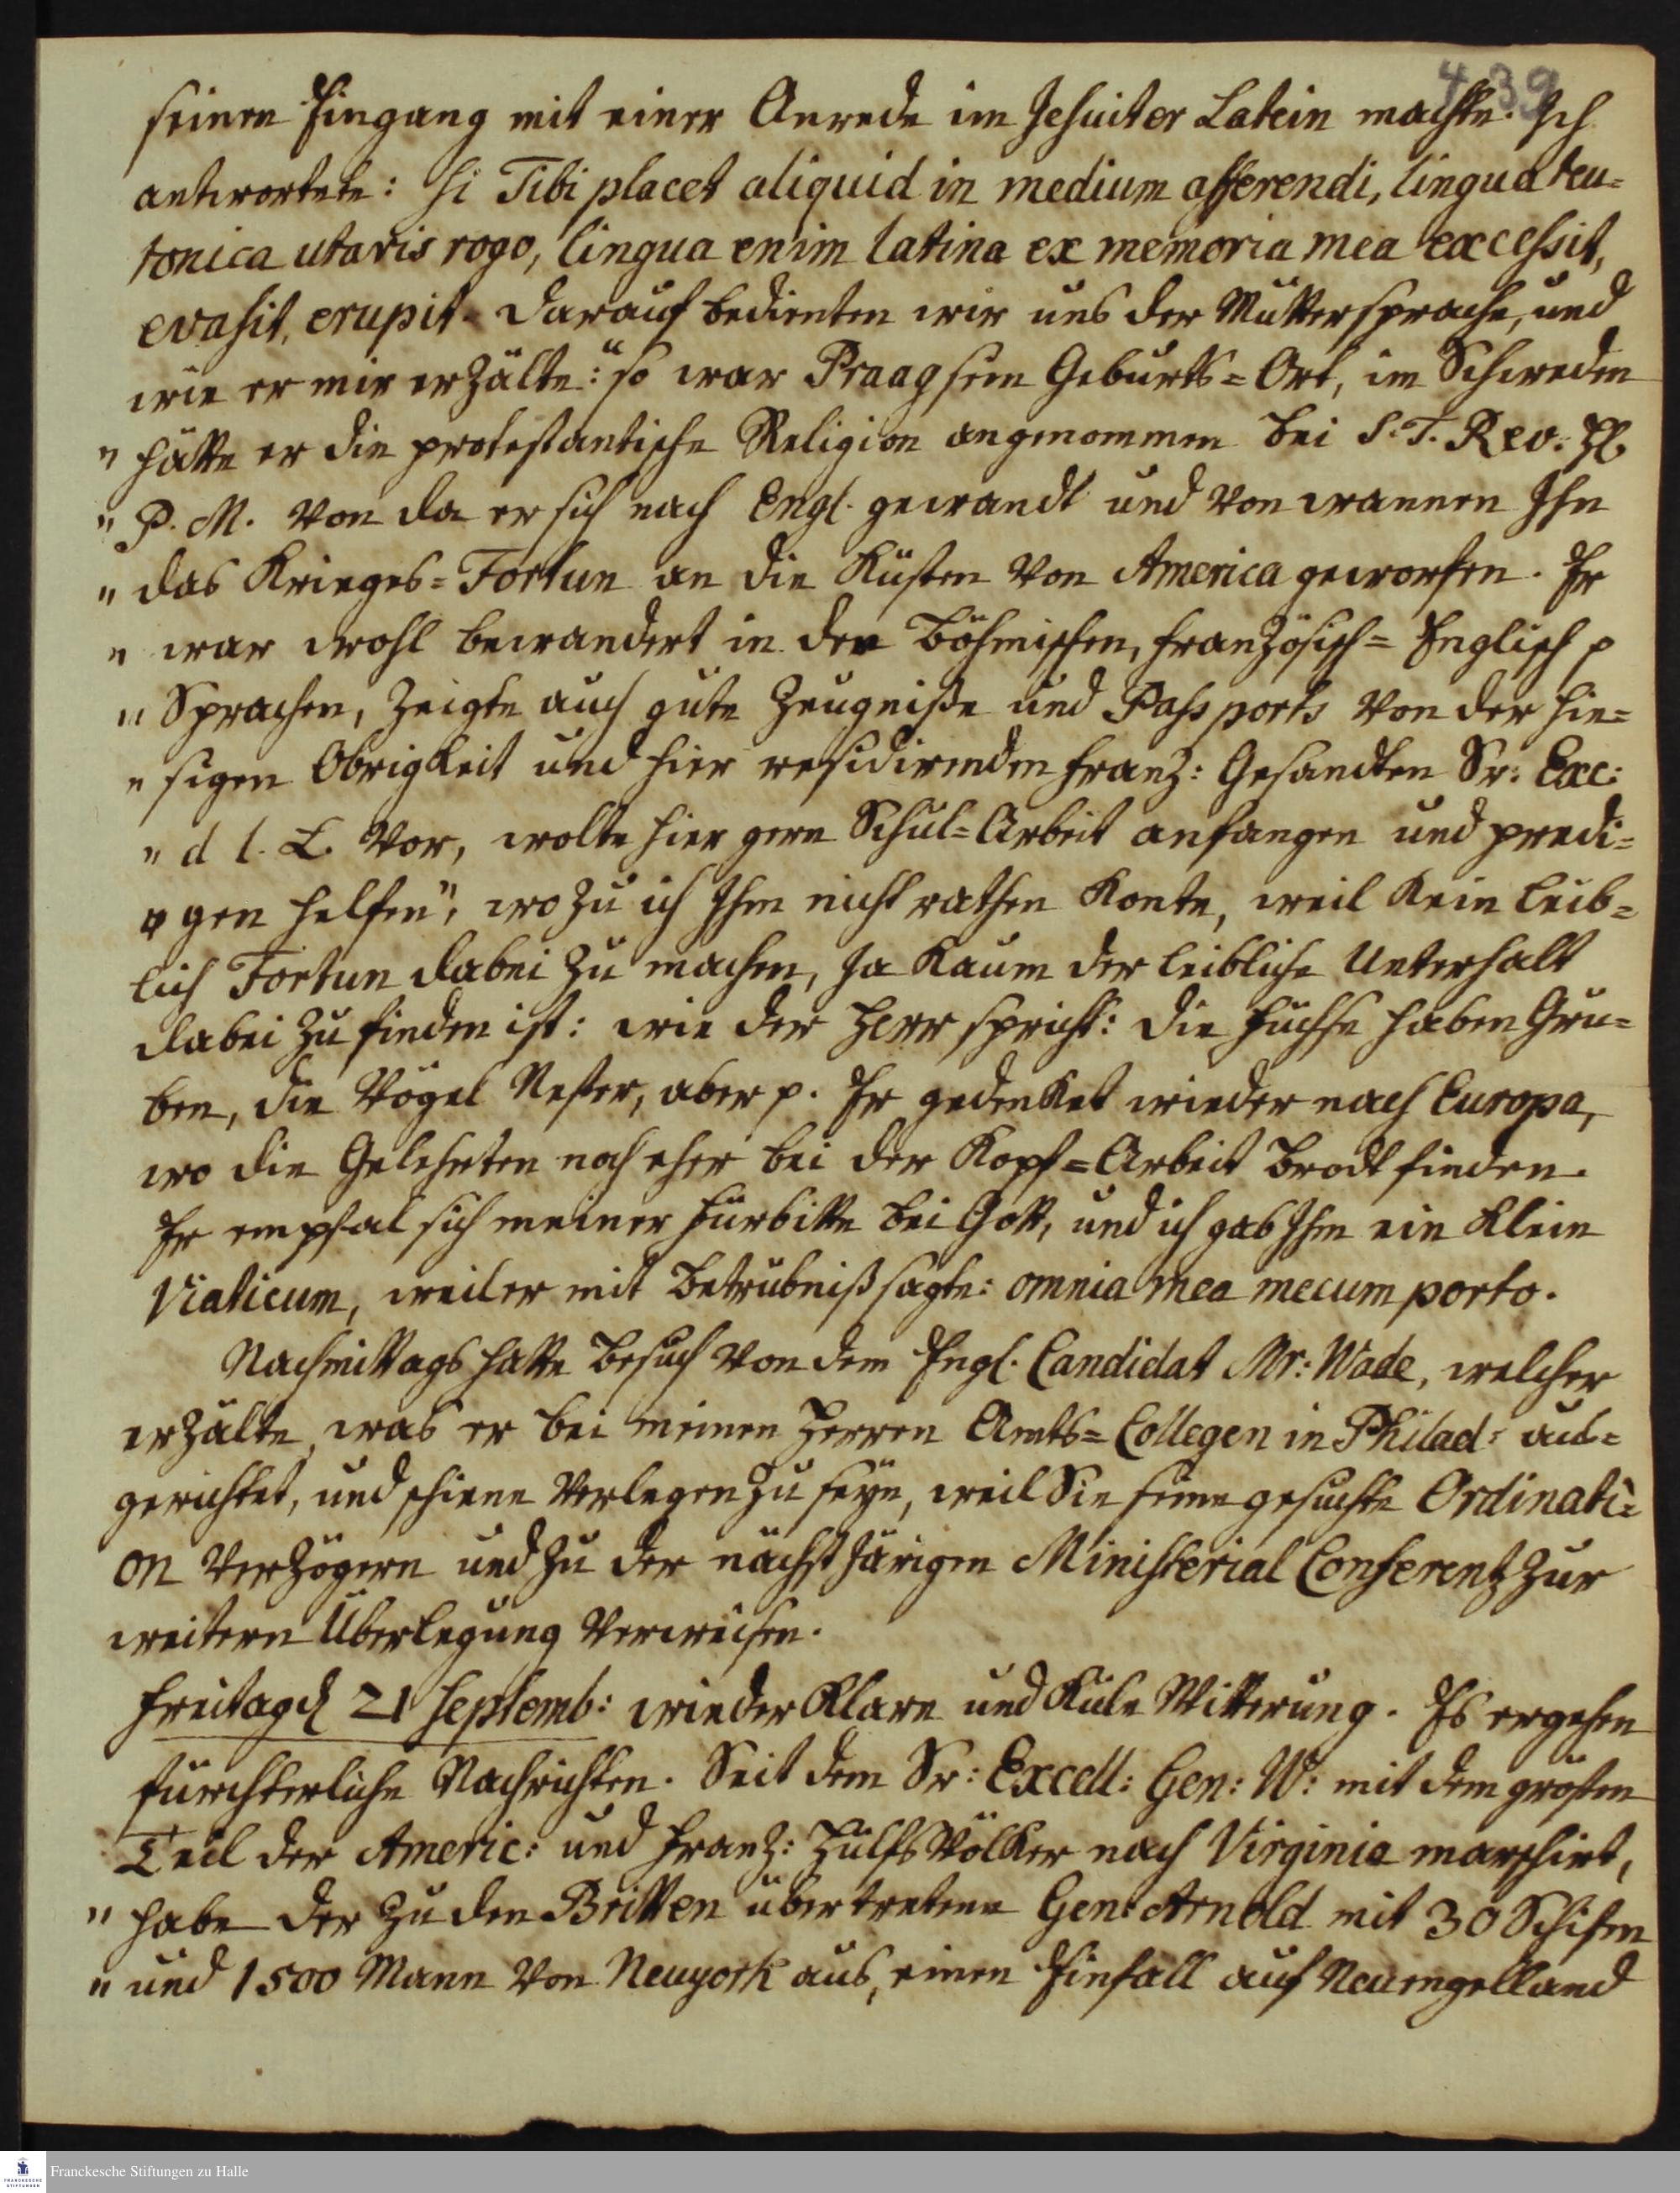 439
seinen Eingang mit einer Anrede im Jesuiter Latein machte. Ich
antwortete: si Tibi placet aliquid in medium afferendi, lingua teu=
tonica utaris rogo, lingua enim latina ex memoria mea excessit,
evasit, erupit. Darauf bedienten wir uns der Muttersprache, und
wie er mir erzälte: "so war Praag sein Geburts=Ort, im Schweden
" hätte er die protestantische Religion angenommen bei S. T. Rev: H
" P. M. von da er sich nach Engl. gewandt und von wannen Ihn
" das Krieges=Fortun an die Küsten von America geworfen. Er
" war wohl bewandert in der Böhmischen, französisch= Englisch p
" Sprachen, zeigte auch gute Zeugniße und Passports von der hie=
" sigen Obrigkeit und hier residirenden franz: Gesandten Sr: Exc:
" d l. L. vor, wolte hier gern Schul=Arbeit anfangen und predi=
" gen helfen", wozu ich Ihm nicht rathen konte, weil kein leib=
lich Fortun dabei zu machen, ja kaum der leibliche Unterhalt
dabei zu finden ist: wie der Herr spricht: die Füchse haben Gru=
ben, die Vögel Nester, aber p. Er gedenket wieder nach Europa,
wo die Gelehrten noch eher bei der Kopf=Arbeit Brodt finden.
Er empfal sich meiner Fürbitte bei Gott, und ich gab Ihm ein klein
Viaticum, weil er mit Betrübniß sagte: omnia mea mecum porto.
Nachmittags hatte Besuch von dem Engl. Candidat Mr: Wade, welcher
erzälte, was er bei meinen Herren Amts=Collegen in Philad: aus=
gerichtet, und schiene verlegen zu seyn, weil Sie seine gesuchte Ordinati=
on verzögern und zu der nächstjärigen Ministerial Conferentz zur
weitern Überlegung verweisen.
Freitag d 21 Septemb: wieder klare und kule Witterung. Es ergehen
fürchterliche Nachrichten. Seit dem Sr: Excell: Gen: W: mit dem grösten
Teil der Americ: und franz: Hülfs Völker nach Virginia marschirt,
" habe der zu den Britten übertretene Gen: Arnold mit 30 Schifen
" und 1500 Mann von Neuyork aus, einen Einfall auf Neuengelland
Franckesche Stiftungen zu Halle
FRANCKESCHE
STIFTUNGEN